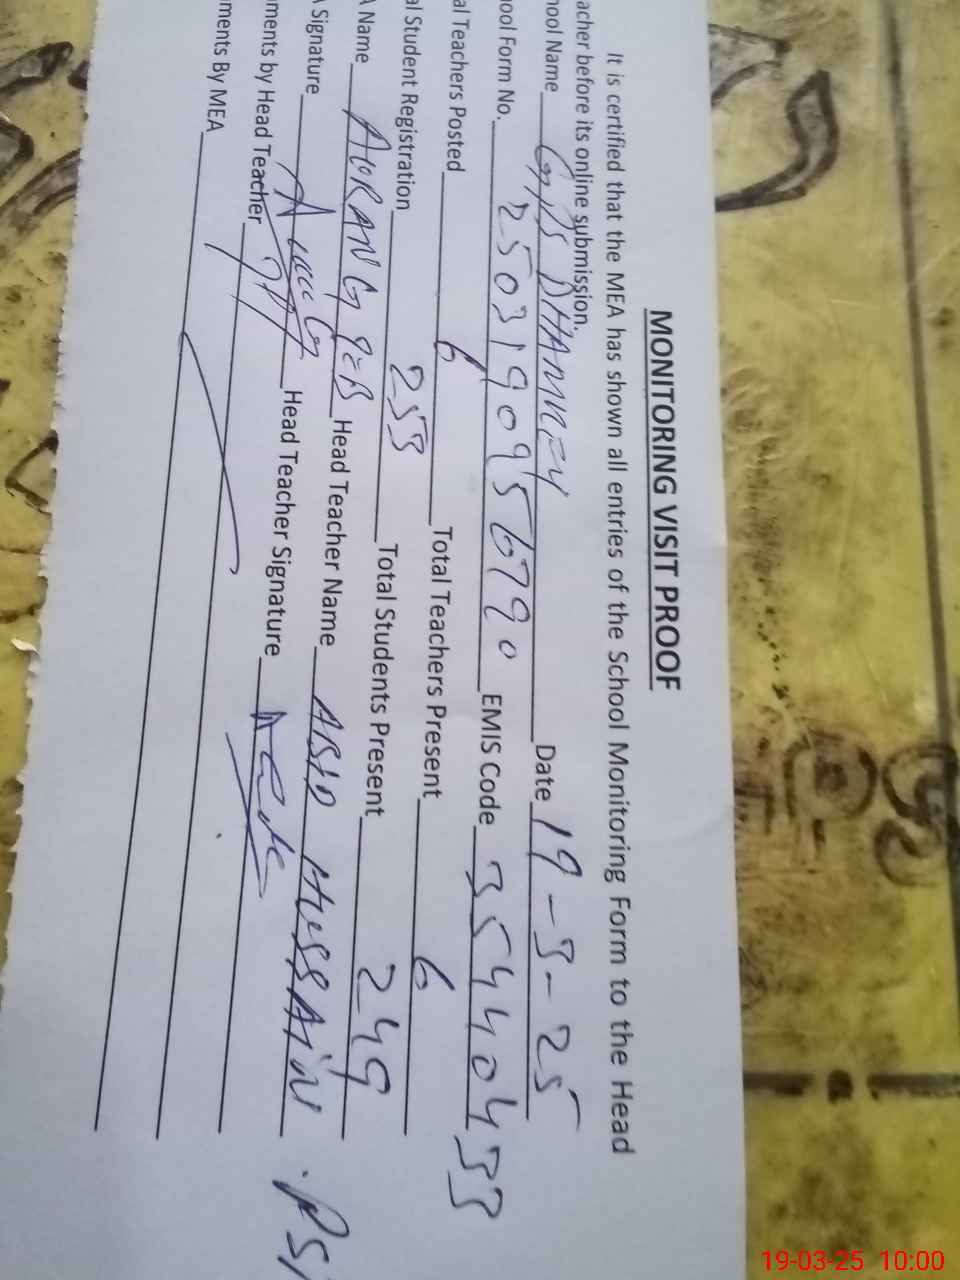 MONITORING VISIT PROOF
It is certified that the MEA has shown all entries of the School Monitoring Form to the Head
acher before its online submission.
ool Name DHAMKEY Date 19-3-25
ool Form No. 2503190956790 EMIS Code 35440433
al Teachers Posted 6 Total Teachers Present 6
al Student Registration 253 Total Students Present 249
A Name AURANGZEB Head Teacher Name ABID HUSSAIN . PST
A Signature Head Teacher Signature
ments by Head Teacher
ments By MEA
19-03-25 10:00